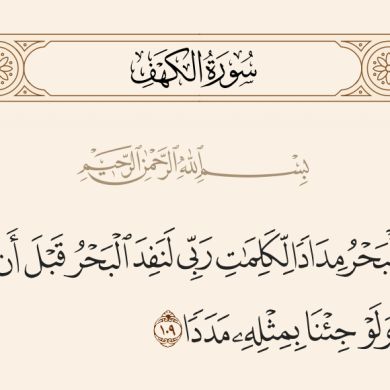 سُورَةُ الكَهْفِ
بِسْمِ ٱللَّهِ ٱلرَّحْمَٰنِ ٱلرَّحِيمِ
لْبَحْرُ مِدَادًا لِّكَلِمَٰتِ رَبِّي لَنَفِدَ ٱلْبَحْرُ قَبْلَ أَن
وَلَوْ جِئْنَا بِمِثْلِهِۦ مَدَدًا ١٠٩